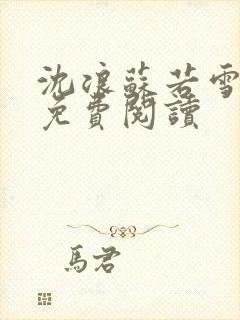 沈浪蘇若雪
免費閱讀
馬君